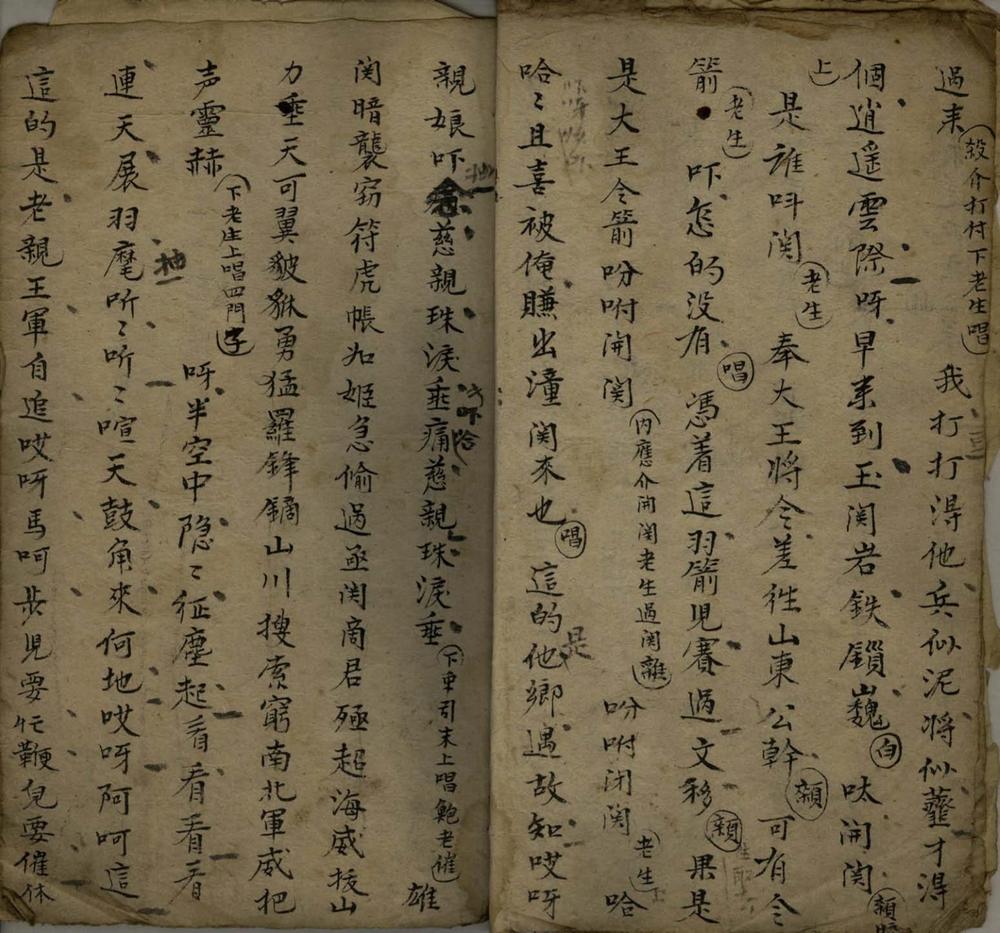 過来（殺介打忖下老生唱）我打打得他兵似泥将似虀才得
個逍遥雲際呀早来到玉関岩鉄鎖巍（白）呔開関
上是誰呌関（老生）奉大王将令差徃山東公幹可有令
箭（老生）吓怎的没有（唱）馮着這羽箭見賽過文移果是
是大王令箭吩咐開関（内應介開関老生過関）吩咐闭関（老生）哈
哈〻且喜被俺賺出潼関來也（唱）這的是他鄉遇故知哎呀
親娘吓慈親珠淚垂痛慈親珠淚垂（下車周末上唱鮑老催）雄
関暗襲窃符虎帳如姬急偷過函関商君殛超海威拔山
力垂天可翼貔貅勇猛羅鋒鏑山川搜索窮南北軍威把
声靈赫（下老生上唱四門子）呀半空中隐〻征塵起看看看看
連天展羽麾听〻听〻喧天鼓角來何地哎呀阿呵這
這的是老親王軍自追哎呀馬呵步見要忙鞭兒要催休